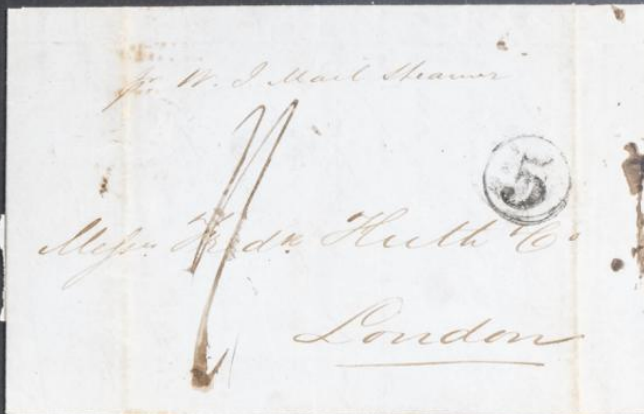 pr W. I. Mail Steamer
5
Messrs Fredk Huth & Co
London